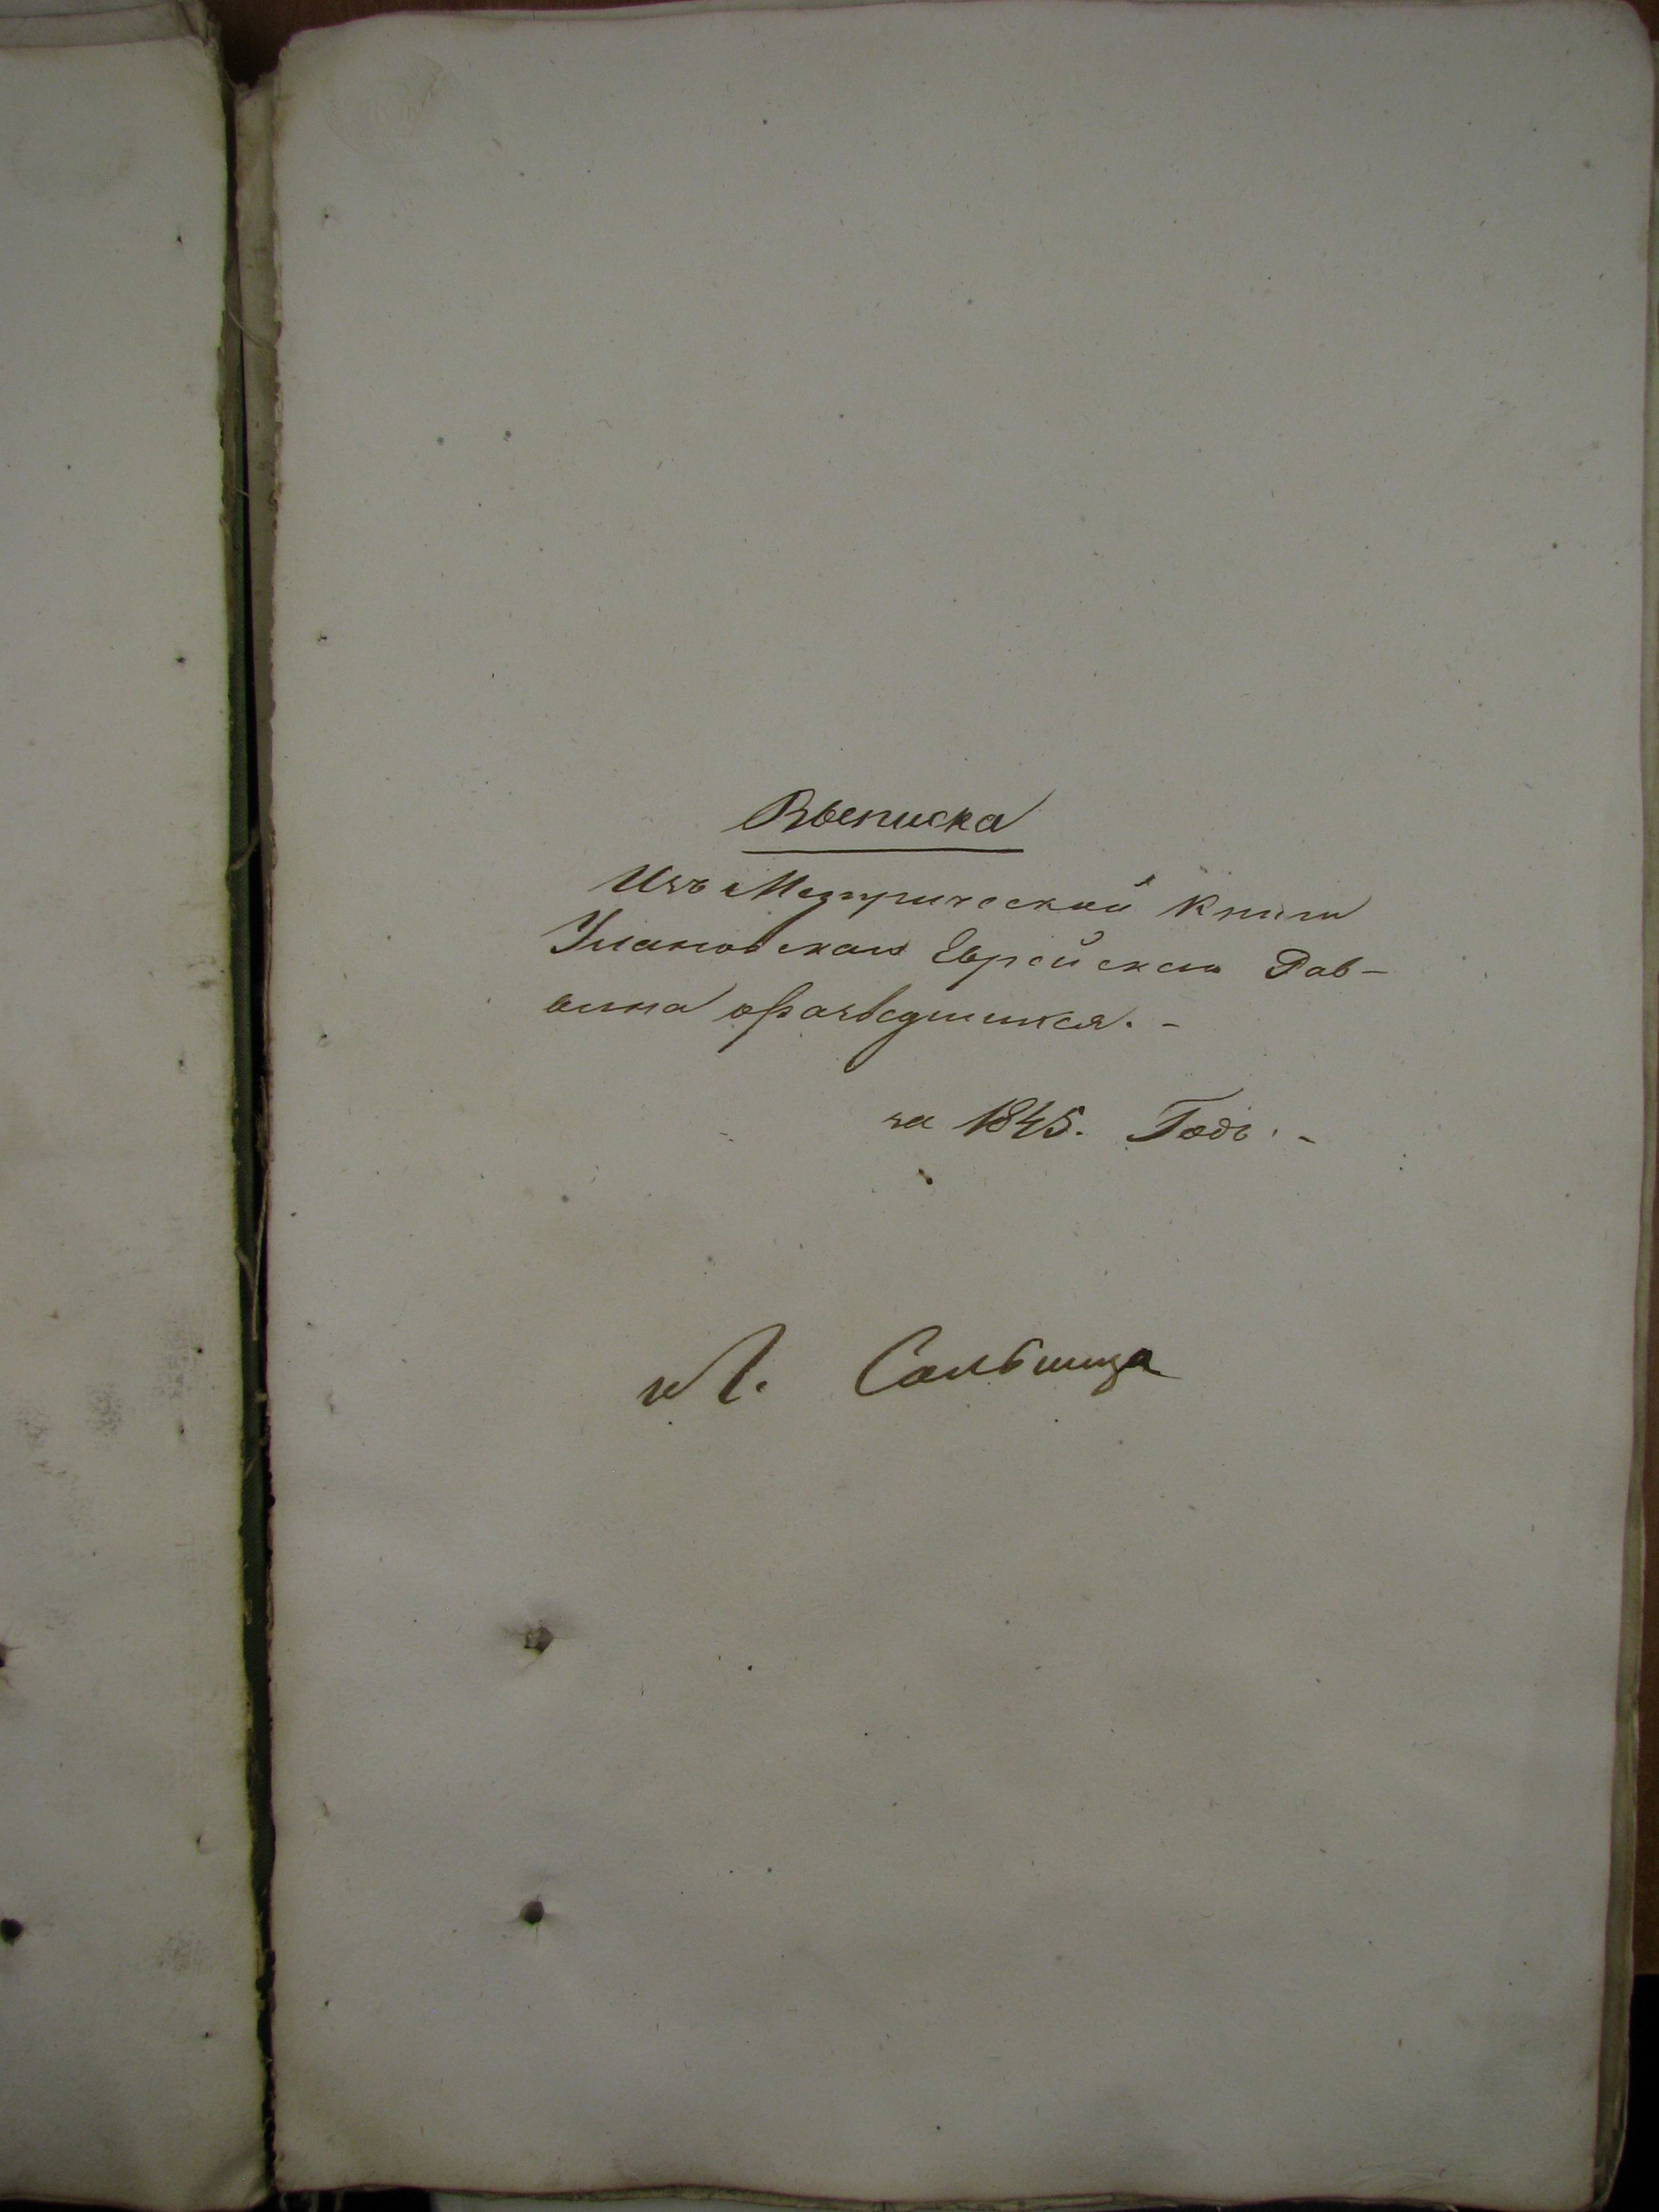 Выписка
Изъ Метрической Книги
Улановскаго Еврейскаго Рав-
вина о разведшихся. -
за 1845. Годъ. -
М. Сальница